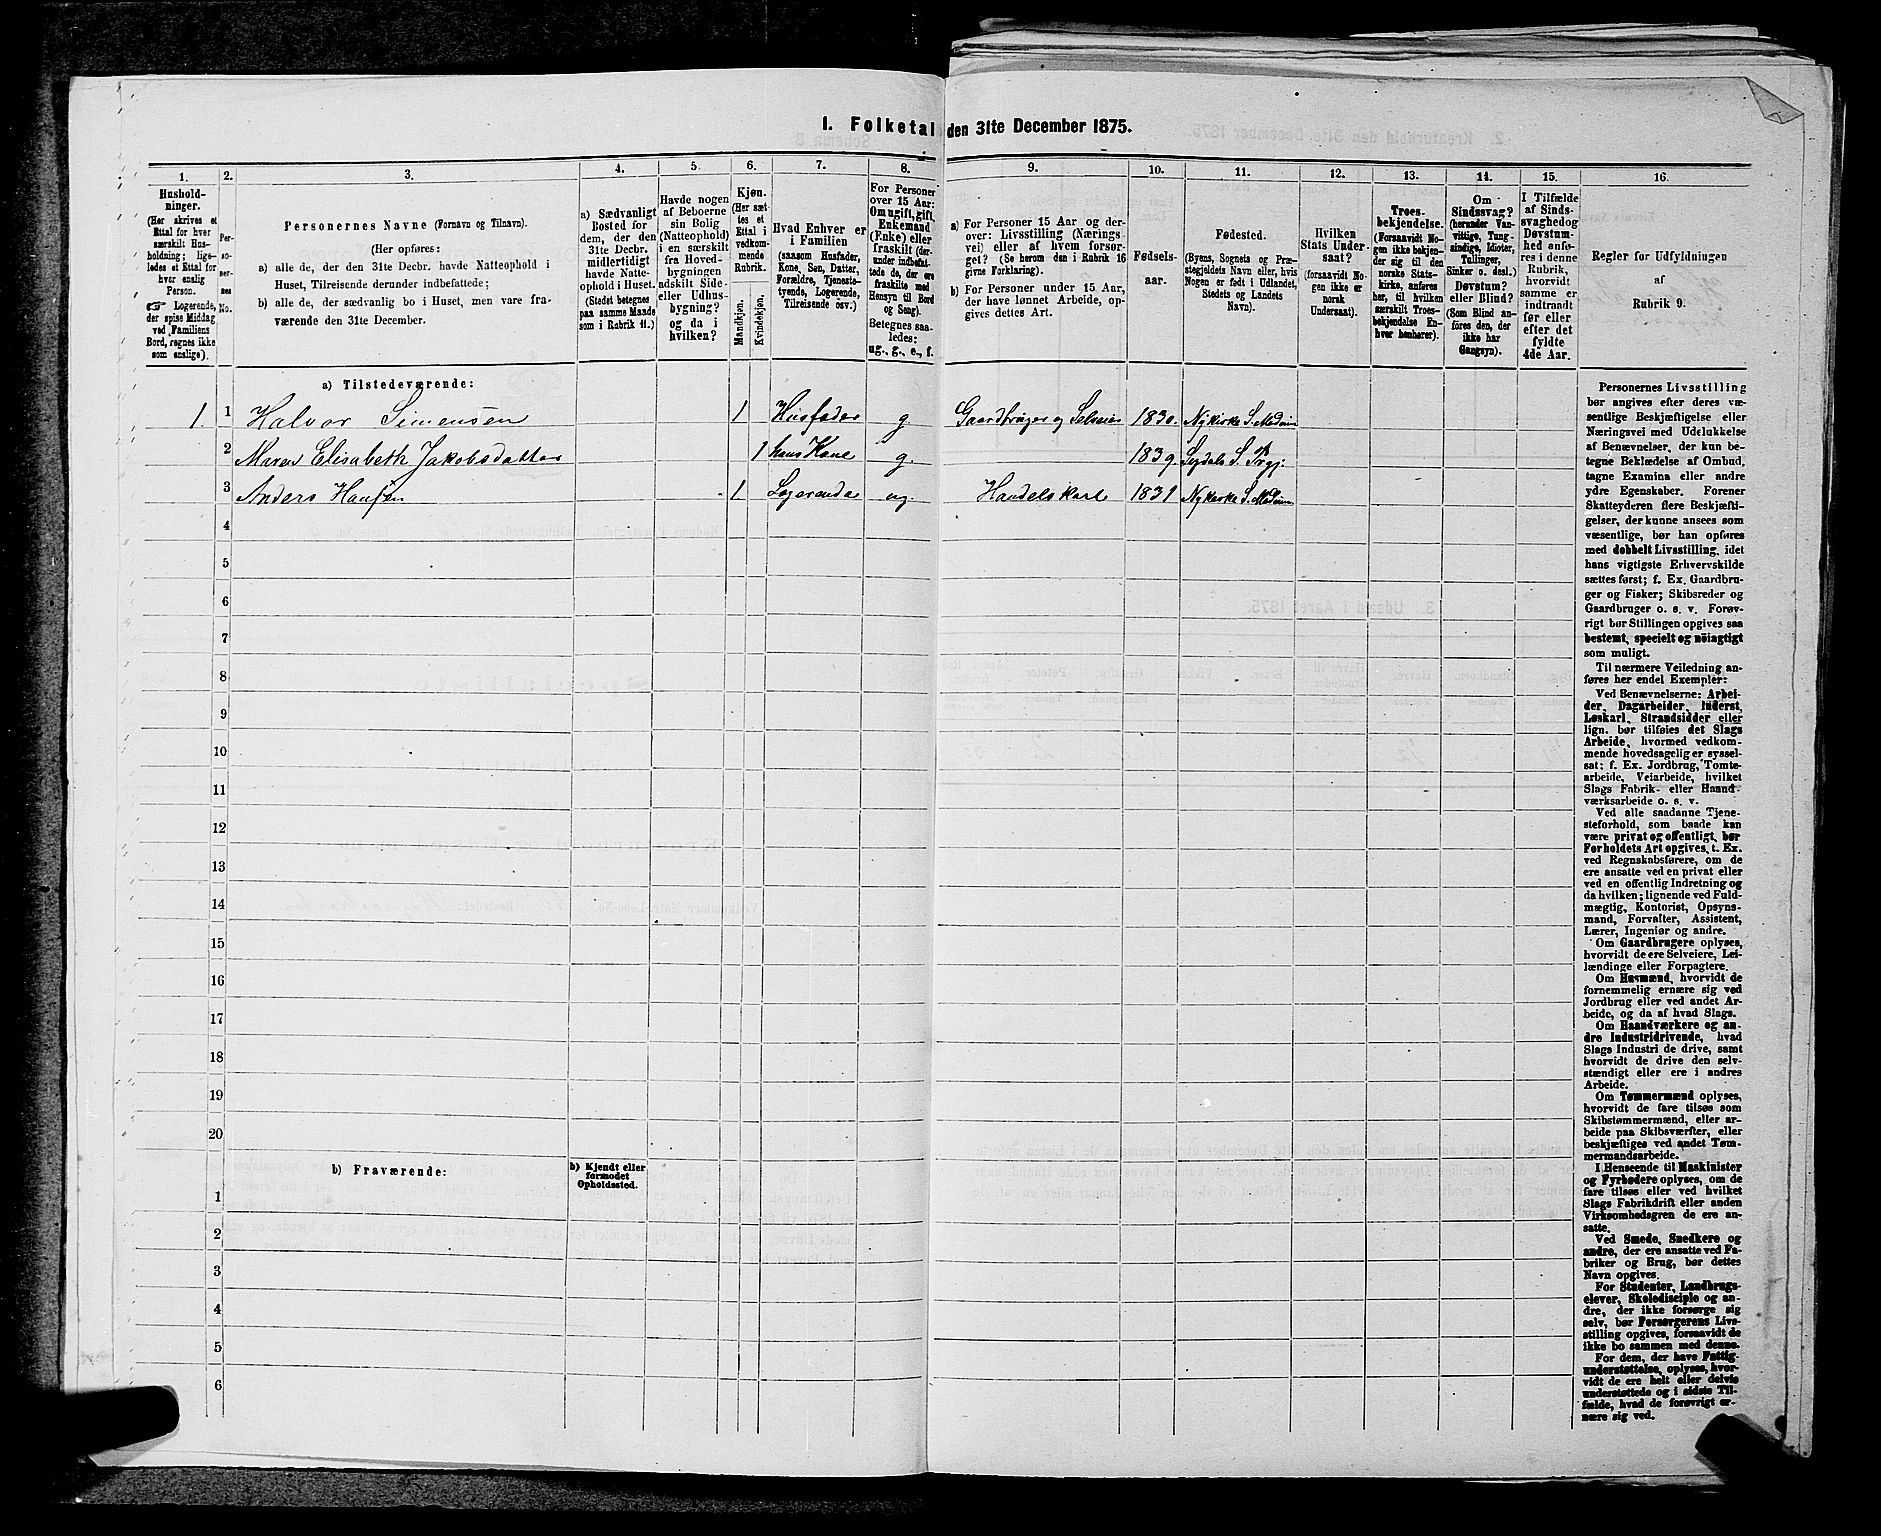 I. Folketal den 31te December 1875.
1.
2.
3.
4.
5.
6.
7.
8.
9.
10.
11.
12.
13.
14.
15.
16.
Hushold-
ninger.
(Her skrives et
Ettal for hver
særskilt Hus-
holdning; lige-
ledes et Ettal for
hver enslig
Person.
☞ Logerende,
der spise Middag
ved Familiens
Bord, regnes ikke
som enslige).
Per-
so-
ner-
nes
No.
Personernes Navne (Fornavn og Tilnavn).
(Her opføres:
a) alle de, der den 31te Decbr. havde Natteophold i
Huset, Tilreisende derunder indbefattede;
b) alle de, der sædvanlig bo i Huset, men vare fra-
værende den 31te December.
a) Sædvanligt
Bosted for
dem, der den
31te Decbr.
midlertidigt
havde Natte-
ophold i Huset.
(Stedet betegnes
paa samme Maade
som i Rubrik 11.)
Havde nogen
af Beboerne
sin Bolig
(Natteophold)
i en særskilt
fra Hoved-
bygningen
adskilt Side-
eller Udhus-
bygning?
og da i
hvilken?
Kjøn.
(Her sæt-
tes et
Ettal i
vedkom-
mende
Rubrik.
Mandkjøn.
Kvindekjøn.
Hvad Enhver er
i Familien
(saasom Husfader,
Kone, Søn, Datter,
Forældre, Tjeneste-
tyende, Logerende,
Tilreisende osv.)
For Personer
over 15 Aar:
Om ugift, gift,
Enkemand
(Enke) eller
fraskilt (der-
under indbefat-
tede de, der ere
fraskilte med
Hensyn til Bord
og Seng).
Betegnes saa-
ledes:
ug., g., e., f.
a) For Personer 15 Aar og der-
over: Livsstilling (Nærings-
vei) eller af hvem forsør-
get? (Se herom den i Rubrik 16
givne Forklaring).
b) For Personer under 15 Aar,
der have lønnet Arbeide, op-
gives dettes Art.
Fødsels-
aar.
Fødested.
(Byens, Sognets og Præ-
stegjeldets Navn eller, hvis
Nogen er født i Udlandet,
Stedets og Landets
Navn).
Hvilken
Stats Under-
saat?
(forsaavidt No-
gen ikke er
norsk
Undersaat).
Troes-
bekjendelse.
(Forsaavidt No-
gen ikke bekjen-
der sig til den
norske Stats-
kirke, anføres
her, til hvilken
særskilt Troes-
bekjendelse En-
hver henhører).
Om
Sindssvag?
(herunder Van-
vittige, Tung-
sindige, Idioter,
Tullinger,
Sinker o. desl.)
Døvstum?
eller Blind?
(Som Blind an-
føres den, der
ikke har
Gangsyn).
I Tilfælde
af Sinds-
svaghed og
Døvstum-
hed anfø-
res i denne
Rubrik,
hvorvidt
samme er
indtraadt
før eller
efter det
fyldte
4de Aar.
Regler for Udfyldningen
af
Rubrik 9.
a) Tilstedeværende:
1 1 Halvor Simensen 1 Husfader g. Gaardbruger og Selveier 1830. Nykirke S. Modum
2 Maren Elisabeth Jakobsdatter 1 hans Kone g. 1839. S. Prgj.
3 Anders Hansen 1 Logerende ug. Handelskarl 1831 Nykirke S. Modum
4
5
6
7
8
9
10
11
12
13
14
15
16
17
18
19
20
b) Fraværende:
b) Kjendt eller
formodet
Opholdssted.
1
2
3
4
5
6
Personernes Livsstilling
bør angives efter deres væ-
sentlige Beskjæftigelse eller
Næringsvei med Udelukkelse
af Benævnelser, der kun be-
tegne Beklædelse af Ombud,
tagne Examina eller andre
ydre Egenskaber. Forener
Skatteyderen flere Beskjæfti-
gelser, der kunne ansees som
væsentlige, bør han opføres
med dobbelt Livsstilling, idet
hans vigtigste Erhvervskilde
sættes først; f. Ex. Gaardbru-
ger og Fisker; Skibsreder og
Gaardbruger o. s. v. Forøv-
rigt bør Stillingen opgives saa
bestemt, specielt og nöiagtigt
som muligt.
Til nærmere Veiledning an-
føres her endel Exempler:
Ved Benævnelserne: Arbei-
der, Dagarbeider, Inderst,
Løskarl, Strandsidder eller
lign. bør tilføies det Slags
Arbeide, hvormed vedkom-
mende hovedsagelig er syssel-
sat; f. Ex. Jordbrug, Tomte-
arbeide, Veiarbeide, hvilket
Slags Fabrik- eller Haand-
værksarbeide o. s. v.
Ved alle saadanne Tjene-
steforhold, som baade kan
være privat og offentligt, bør
Forholdets Art opgives, t. Ex.
ved Regnskabsførere, om de
ere ansatte ved en privat eller
ved en offentlig Indretning og
da hvilken; lignende ved Fuld-
mægtig, Kontorist, Opsyns-
mand, Forvalter, Assistent,
Lærer, Ingeniør og andre.
Om Gaardbrugere oplyses,
hvorvidt de ere Selveiere, Lei-
lændinge eller Forpagtere.
Om Husmænd, hvorvidt de
fornemmelig ernære sig ved
Jordbrug eller ved andet Ar-
beide, og da af hvad Slags.
Om Haandværkere og an-
dre Industridrivende, hvad
Slags Industri de drive, samt
hvorvidt de drive den selv-
stændigt eller ere i andres
Arbeide.
Om Tømmermænd oplyses,
hvorvidt de fare tilsøs som
Skibstømmermænd, eller ar-
beide paa Skibsværfter, eller
beskjæftiges ved andet Tøm-
mermandsarbeide.
I Henseende til Maskinister
og Fyrbødere oplyses, om de
fare tilsøs eller ved hvilket
Slags Fabrikdrift eller anden
Virksomhedsgren de ere an-
satte.
Ved Smede, Snedkere og
andre, der ere ansatte ved Fa-
briker og Brug, bør dettes
Navn opgives.
For Studenter, Landbrugs-
elever, Skoledisciple og an-
dre, der ikke forsørge sig
selv, bør Forsørgerens Livs-
stilling opgives, forsaavidt de
ikke bo sammen med denne.
For dem, der have Fattig-
understøttelse, oplyses, hvor-
vidt de ere helt eller delvis
understøttede og i sidste Til-
fælde, hvad de forøvrigt er-
nære sig ved.